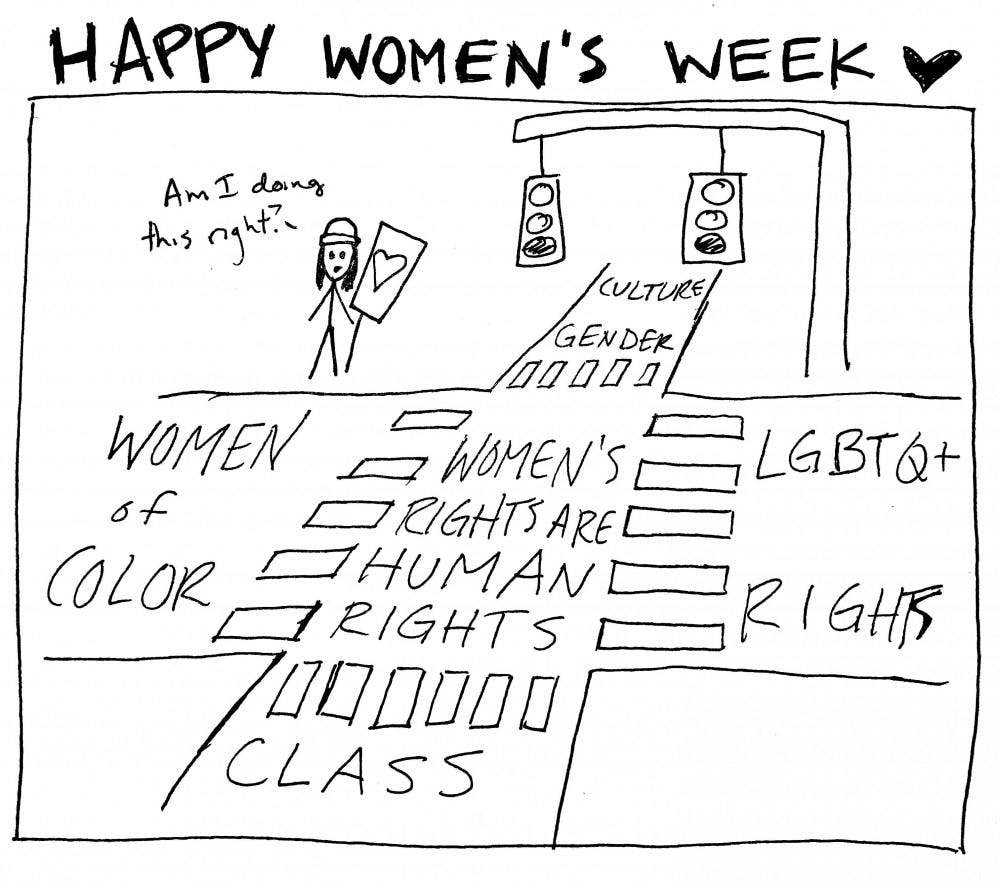 HAPPY WOMEN'S WEEK
Am I doing
this right?
CULTURE
GENDER
WOMEN
of
COLOR
WOMEN'S
RIGHTS ARE
HUMAN
RIGHTS
LGBTQ+
RIGHTS
CLASS